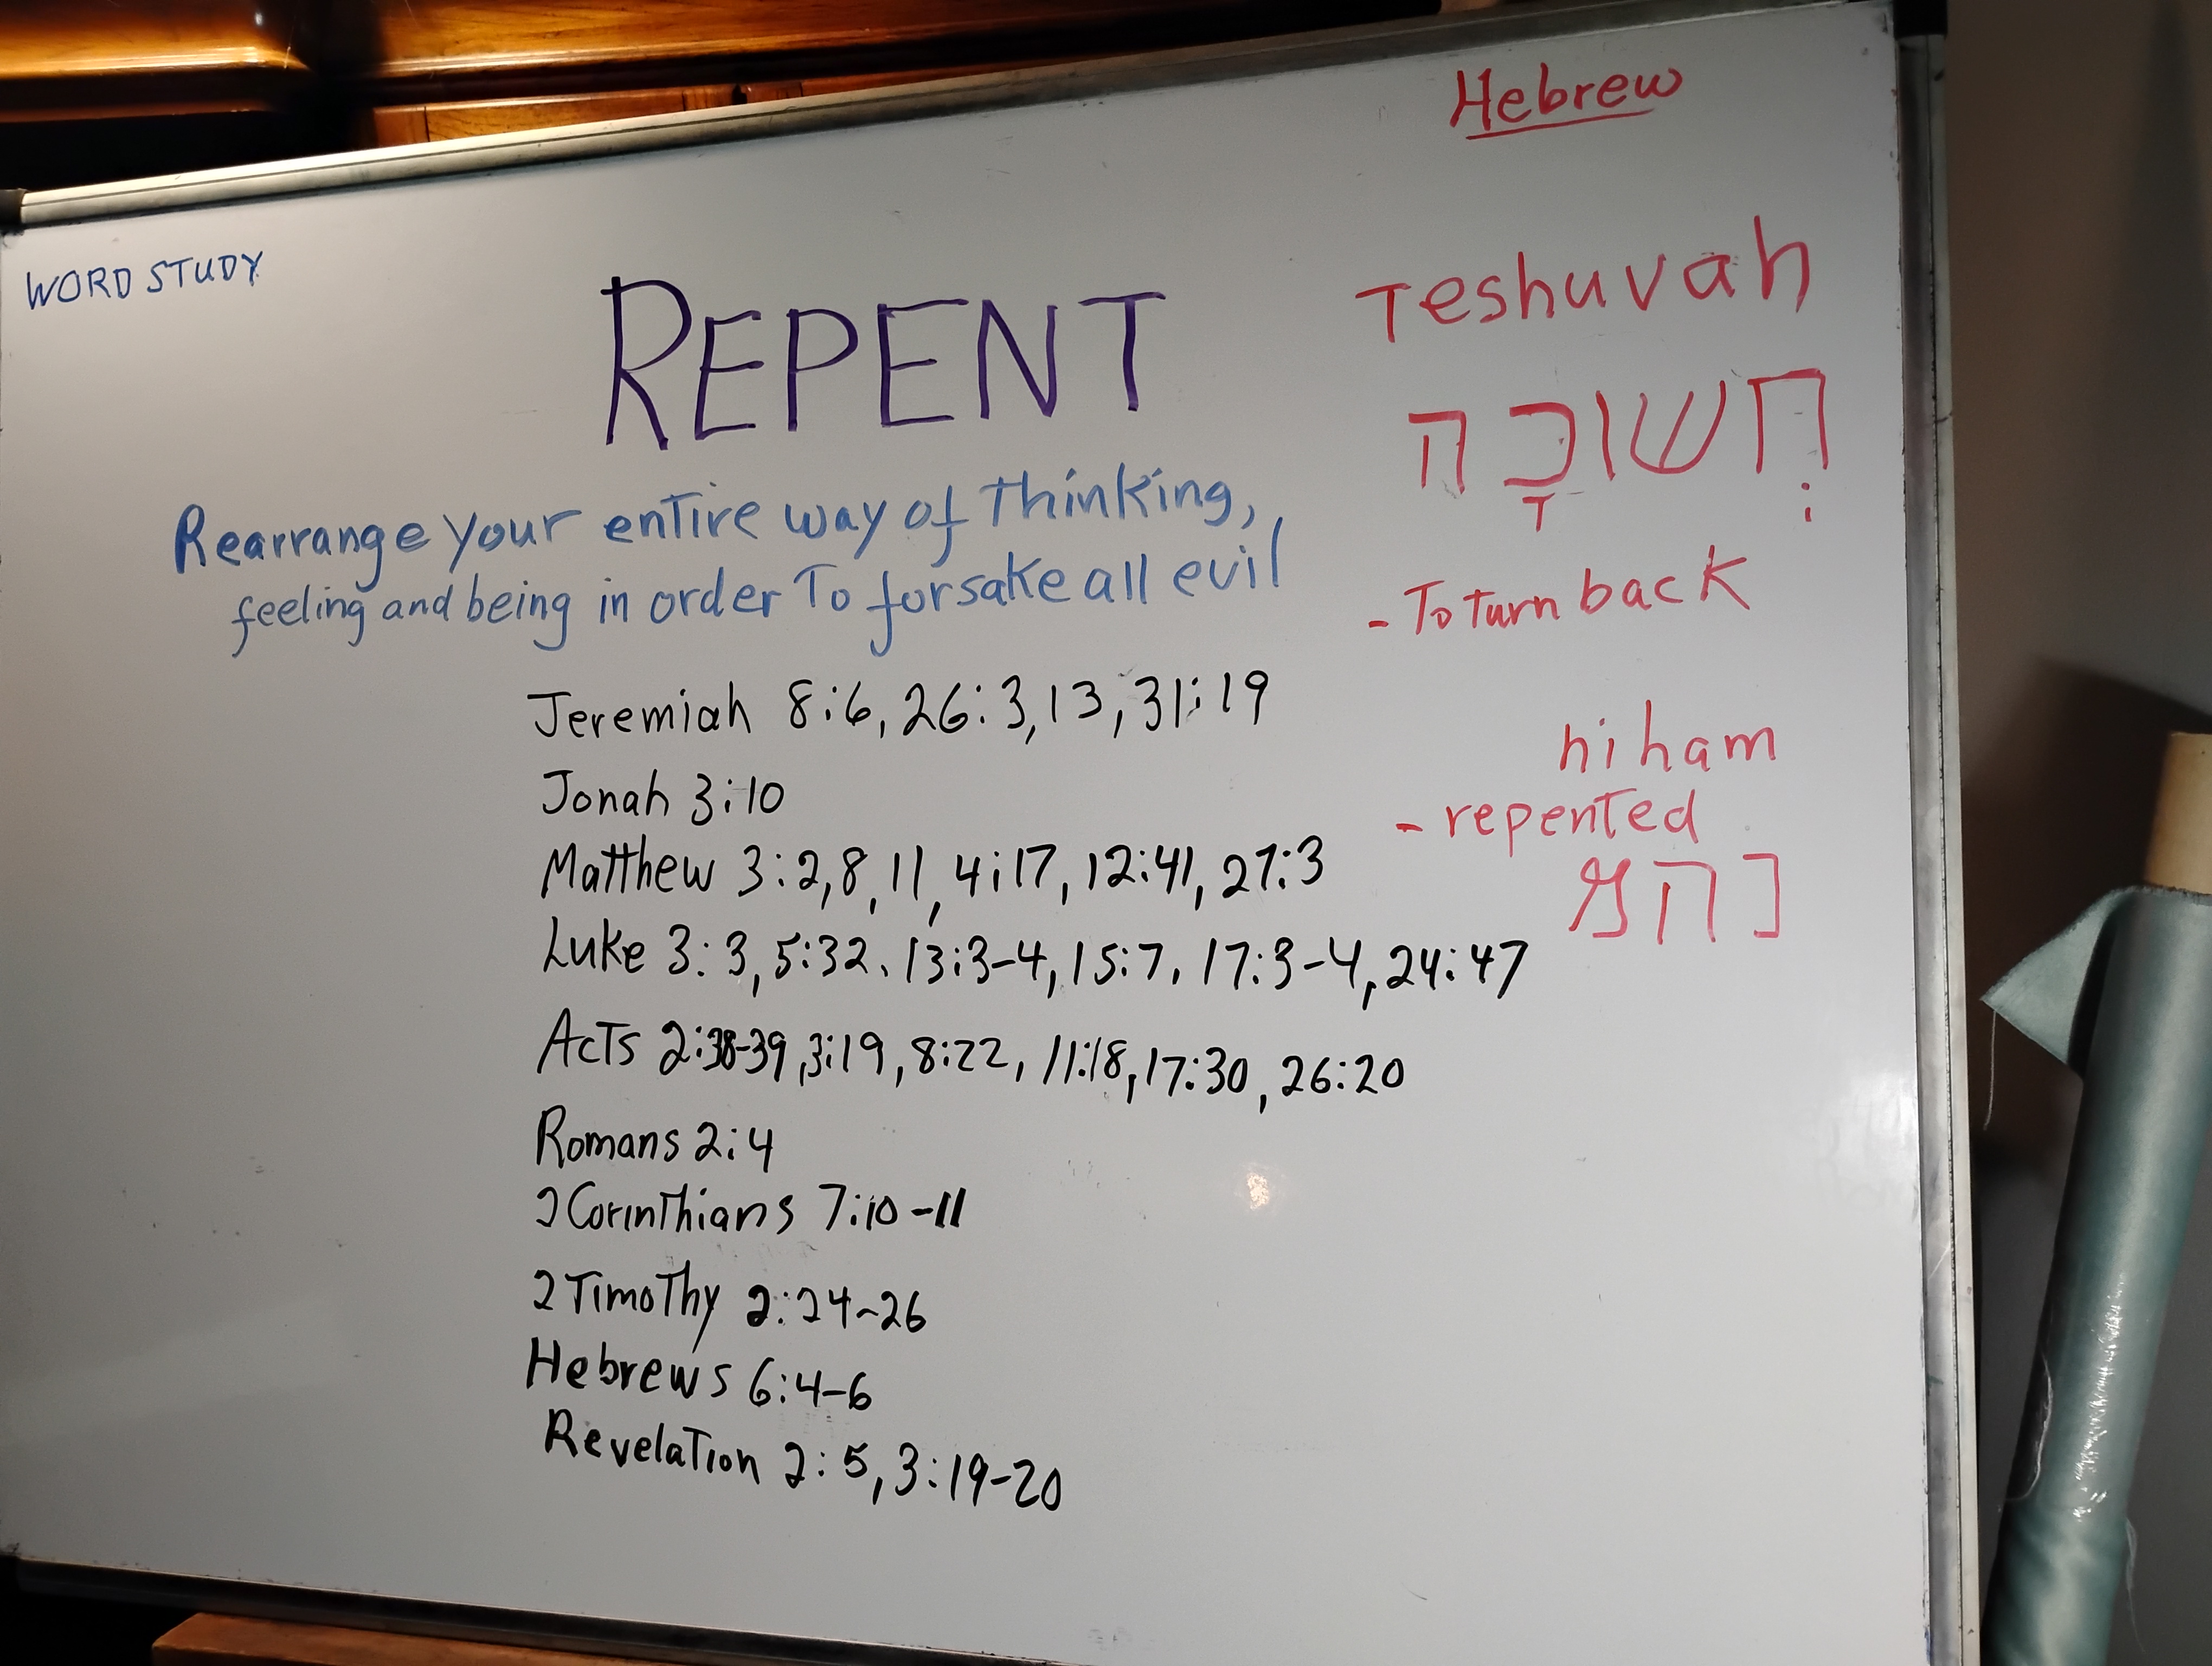 Hebrew
WORD STUDY
REPENT
Teshuvah
תְּשׁוּבָה
Rearrange your entire way of thinking,
feeling and being in order to forsake all evil
- To turn back
Jeremiah 8:6, 26:3,13, 31:19
niham
Jonah 3:10
- repented
Matthew 3:2,8,11, 4:17, 12:41, 27:3
Luke 3:3, 5:32, 13:3-4, 15:7, 17:3-4, 24:47
Acts 2:38-39, 3:19, 8:22, 11:18, 17:30, 26:20
Romans 2:4
2 Corinthians 7:10-11
2 Timothy 2:24-26
Hebrews 6:4-6
Revelation 2:5, 3:19-20